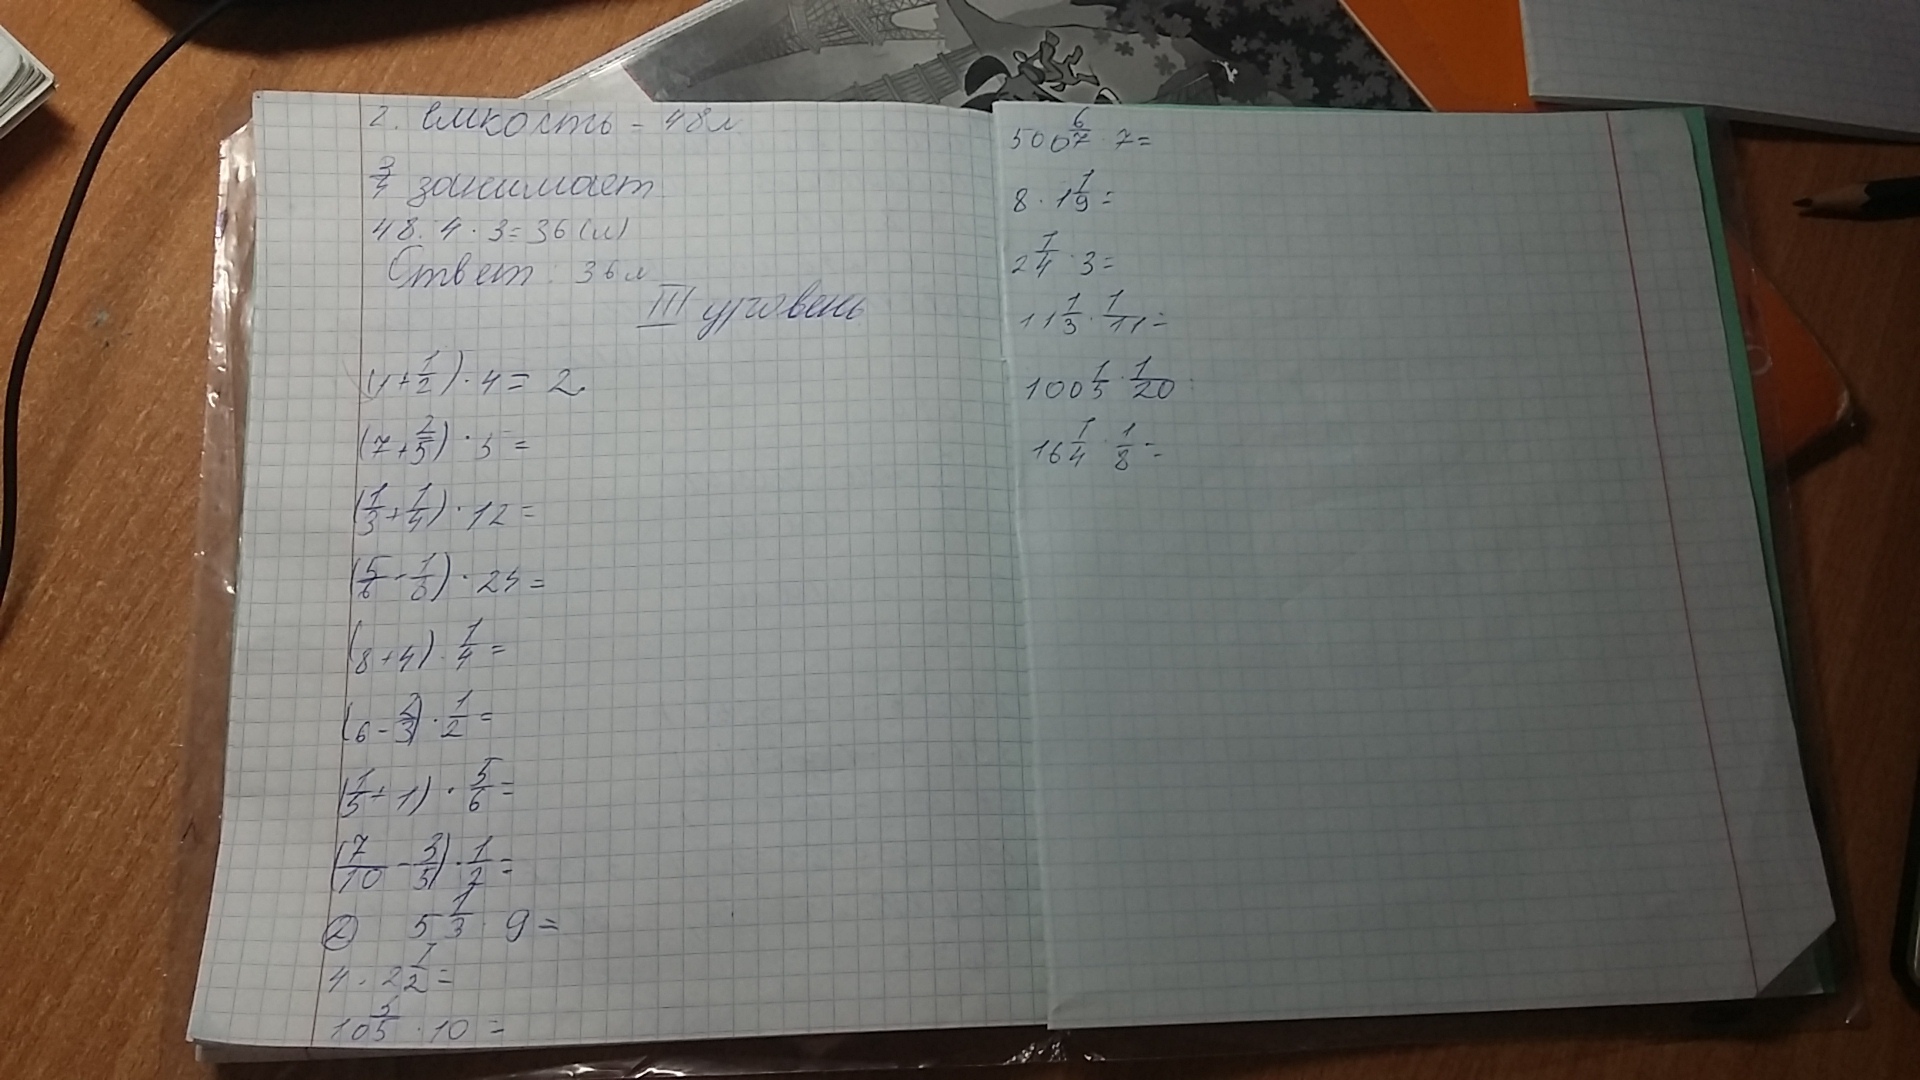 2. Емкость - 48л
3/4 занимает.
48:4·3=36(л)
Ответ: 36л
III уровень
(4+1/2)·4=2
(7+2/5)·5=
(1/3+1/4)·12=
(5/6-1/8)·24=
(8+4)·1/4=
(6-2/3)·1/2=
(1/5+1)·5/6=
(7/10-3/5)·1/2=
② 5 1/3·9=
4·2 1/2=
10 3/5·10=
500 6/7·7=
8·1 1/9=
2 1/4·3=
11 1/3·1/11=
100 1/5·1/20
16 1/4·1/8=